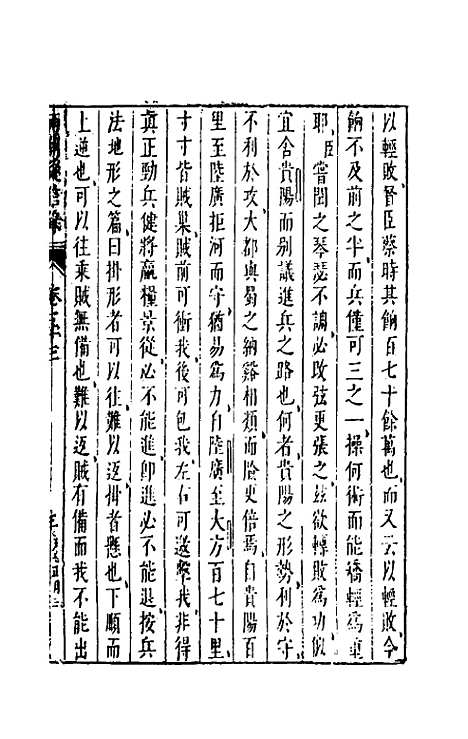 以輕敗督臣蔡時其餉百七十餘萬也而又云以輕敗今
餉不及前之半而兵僅可三之一操何術而能矯輕爲重
耶臣嘗聞之琴瑟不調必改弦更張之兹欲轉敗爲功似
宜舍貴陽而别議進兵之路也何者貴陽之形勢利於守
不利於攻大都與蜀之納谿相類而險更倍焉自貴陽百
里至陸廣拒河而守猶易爲力自陸廣至大方百七十里
寸寸皆賊巢賊前可衝我後可包我左右可邀擊我非得
真正勁兵健將羸糧景從必不能進卽進必不能退按兵
法地形之篇曰掛形者可以往難以返掛者懸也下順而
上逆也可以往乘賊無備也難以返賊有備而我不能出
卷之